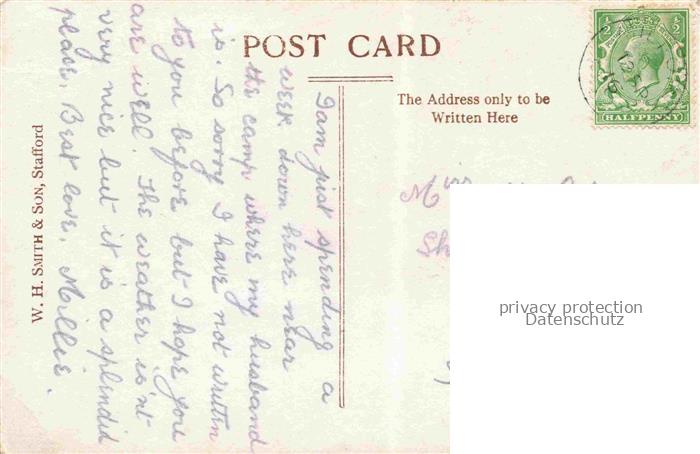 POST CARD
The Address only to be
Written Here
½ ½
HALFPENNY
12
16
W. H. SMITH & SON, Stafford
I am just spending a
week down here near
the camp where my husband
is. So sorry I have not written
to you before but I hope you
are well. The weather isn't
very nice but it is a splendid
place. Best love. Millie.
Sh
privacy protection
Datenschutz